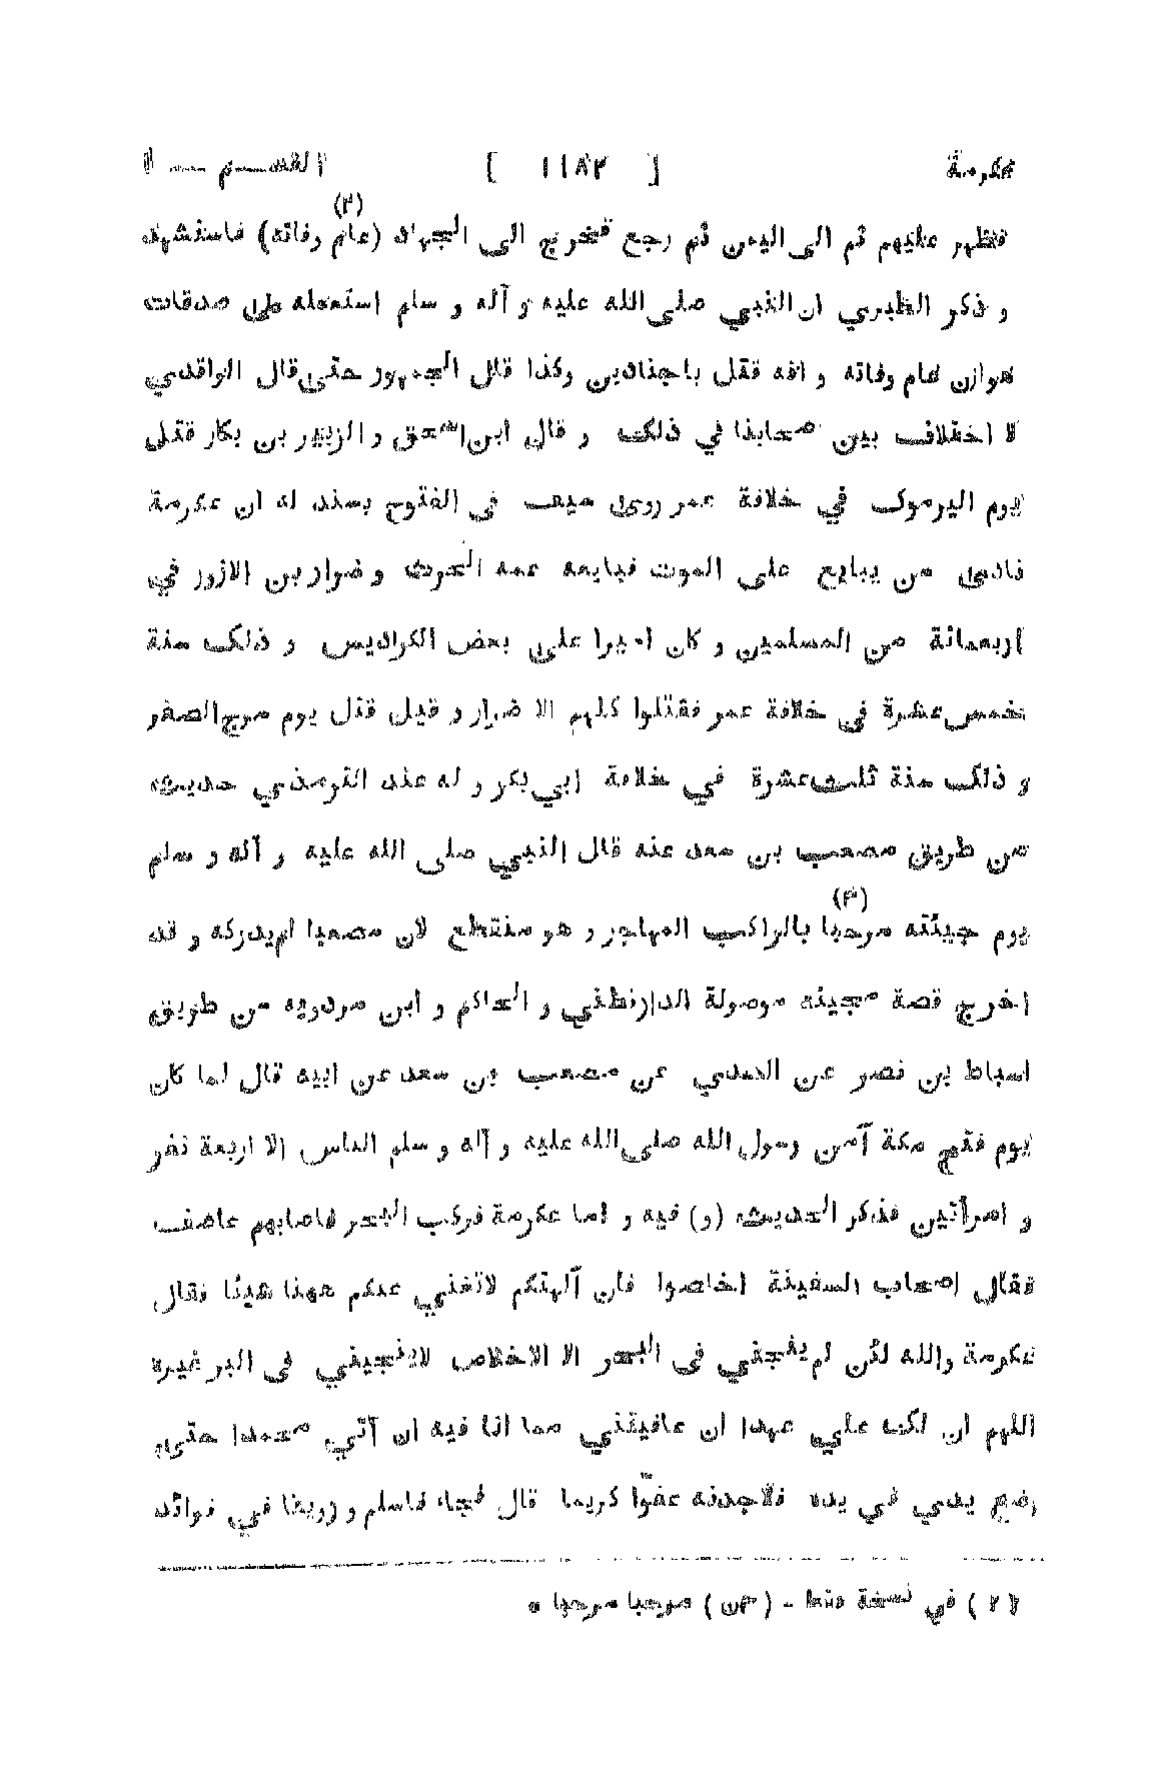 عكرمة [ ١١٨٢ ] القسم — ١
فظهر عليهم ثم الى اليمن ثم رجع فخرج الى الجهاد (عام وفاته) (٢) فاستشهد
و ذكر الطبري ان النبي صلى الله عليه و آله و سلم استعمله على صدقات
هوازن عام وفاته و انه قتل باجنادين وكذا قال الجمهور حتى قال الواقدي
لا اختلاف بين اصحابنا في ذلك و قال ابن اسحق و الزبير بن بكار قتل
يوم اليرموك في خلافة عمر روى سيف في الفتوح بسند له ان عكرمة
نادى من يبايع على الموت فبايعه عمه الحرث و ضرار بن الازور في
اربعمائة من المسلمين و كان اميرا على بعض الكراديس و ذلك سنة
خمس عشرة في خلافة عمر فقتلوا كلهم الا ضرار و قيل قتل يوم مرج الصفر
و ذلك سنة ثلث عشرة في خلافة ابي بكر و له عند الترمذي حديث
من طريق مصعب بن سعد عنه قال النبي صلى الله عليه و آله و سلم
يوم جيئته مرحبا (٣) بالراكب المهاجر و هو منقطع لان مصعبا لم يدركه و قد
اخرج قصة مجيئه موصولة الدارقطني و الحاكم و ابن مردويه من طريق
اسباط بن نصر عن السدي عن مصعب بن سعد عن ابيه قال لما كان
يوم فتح مكة آمن رسول الله صلى الله عليه و آله و سلم الناس الا اربعة نفر
و امرأتين فذكر الحديث (و) فيه و اما عكرمة فركب البحر فاصابهم عاصف
فقال اصحاب السفينة اخلصوا فان آلهتكم لا تغني عنكم ههنا شيئا فقال
عكرمة والله لئن لم ينجني في البحر الا الاخلاص لا ينجيني في البر غيره
اللهم ان لك علي عهدا ان عافيتني مما انا فيه ان آتي محمدا حتى
اضع يدي في يده فلاجدنه عفوّا كريما قال فجاء فاسلم و روينا في فوائد
( ٢ ) في نسخة فقط - ( ٣ن ) مرحبا مرحبا *